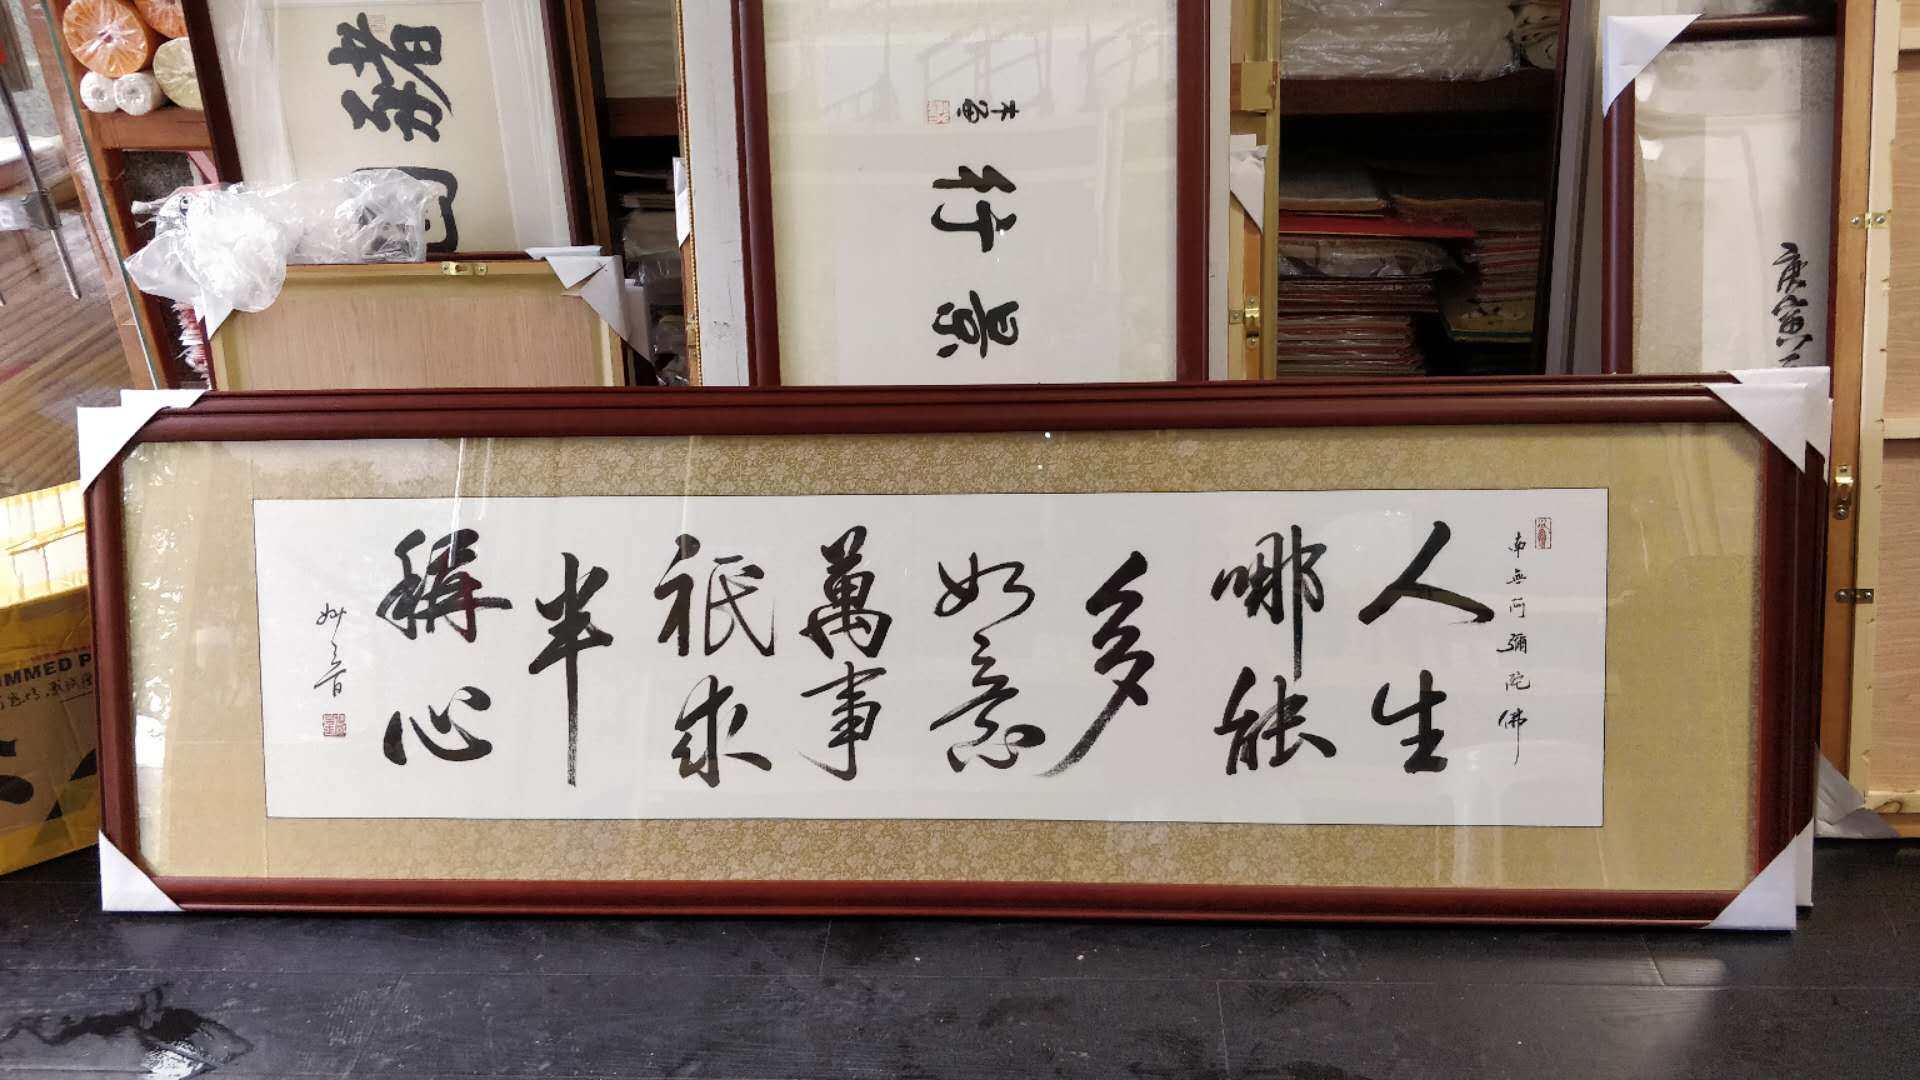 南無阿彌陀佛
人生
哪能
多
如意
萬事
祇求
半
稱心
妙音
景行
庚寅
IMMED P